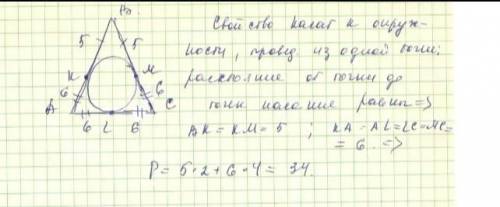 В.
5 5
К М
6 6
А С
6 L 6
Свойство касат к окруж-
ности, провед из одной точки:
расстояние от точки до
точки касание равны =>
ВК = КМ = 5 ; КА = АL = LC = MC =
= 6 =>
Р = 5·2 + 6·4 = 34.